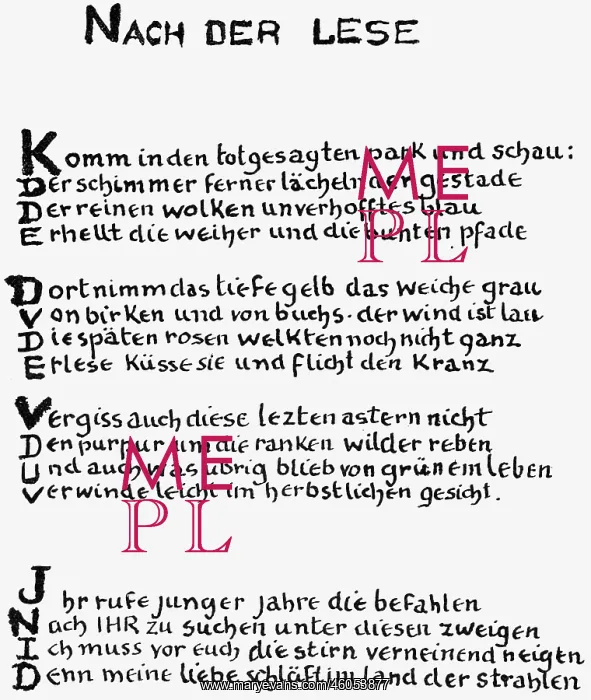 NACH DER LESE
Komm in den totgesagten park und schau:
Der schimmer ferner lächelnder gestade
Der reinen wolken unverhofftes blau
Erhellt die weiher und die bunten pfade
Dort nimm das tiefe gelb das weiche grau
Von birken und von buchs. der wind ist lau
Die späten rosen welkten noch nicht ganz
Erlese küsse sie und flicht den kranz
Vergiss auch diese lezten astern nicht
Den purpur um die ranken wilder reben
Und auch was übrig blieb von grünem leben
Verwinde leicht im herbstlichen gesicht.
Ihr rufe junger jahre die befahlen
Nach IHR zu suchen unter diesen zweigen
Ich muss vor euch die stirn verneinend neigen
Denn meine liebe schläft im land der strahlen
ME
PL
ME
PL
www.maryevans.com/46053877